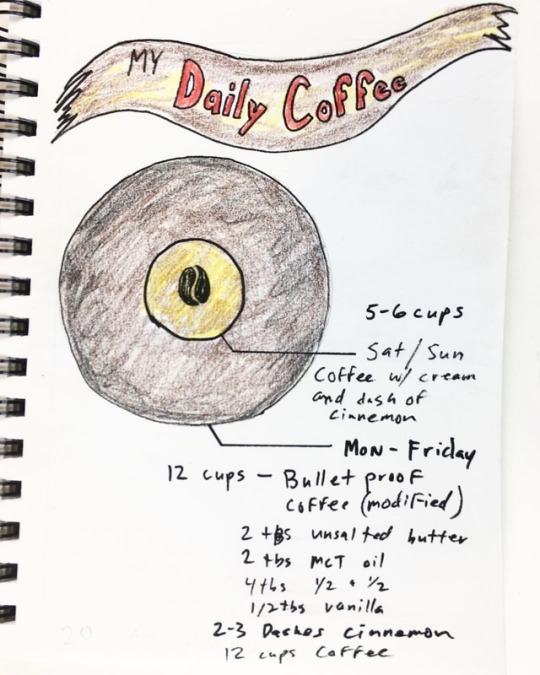 MY Daily Coffee
5-6 cups
Sat/Sun
Coffee w/ cream
and dash of
cinnemon
Mon - Friday
12 cups - Bullet proof
coffee (modified)
2 tbs unsalted butter
2 tbs MCT oil
4tbs 1/2 + 1/2
1/2tbs vanilla
2-3 Dashes cinnemon
12 cups Coffee
20